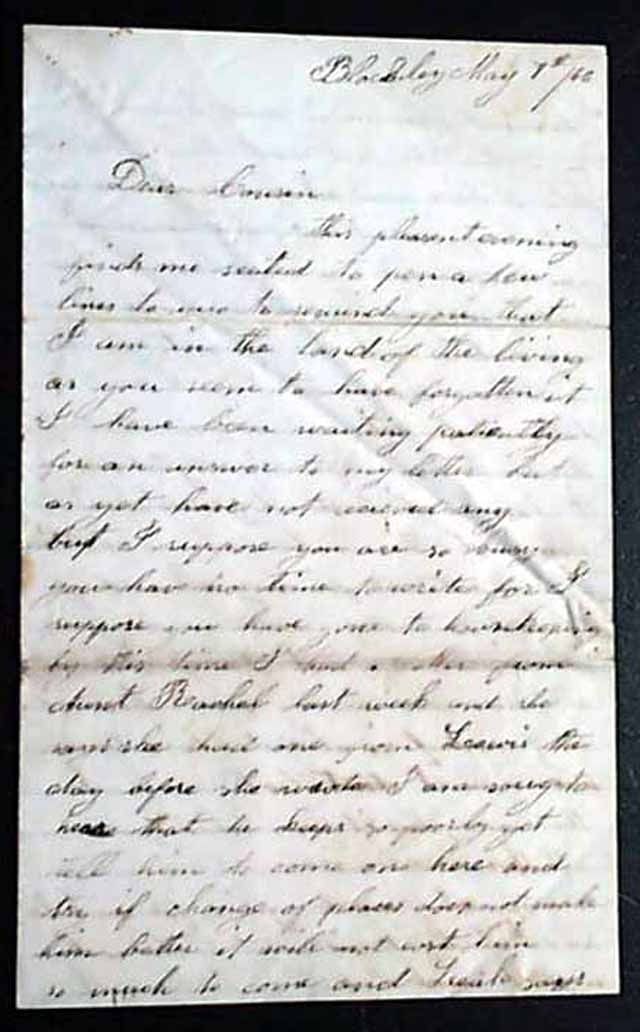 Blockley May 7th /66
Dear Cousin
This pleasent evening
finds me seated to pen a few
lines to you to remind you that
I am in the land of the living
as you seem to have forgotten it
I have been waiting patiently
for an answer to my letter but
as yet have not received any
but I suppose you are so
you have no time to write for I
suppose you have gone to housekeeping
by this time I had a letter from
Aunt Rachel last week and she
says she had one from Leewis the
day before she wrote I am sorry to
hear that he keeps so poorly yet
tell him to come on here and
try if change of places does not make
him better it will not cost him
so much to come and Leah says